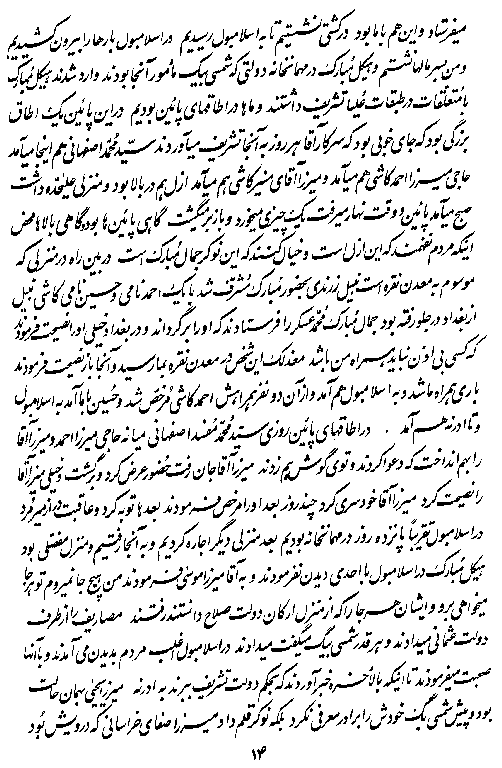 میفرستاد و این هم با ما بود در کشتی نشستیم تا به اسلامبول رسیدیم در اسلامبول بارها را بیرون کشیدیم
و من سر مالها نشستم و هیکل مبارک در مهمانخانه دولتی که شمسی بیک مأمور آنجا بودند وارد شدند هیکل مبارک
با متعلقات در طبقات علیا تشریف داشتند و ما ها در اطاقهای پائین بودیم در این پائین یک اطاق
بزرگی بود که جای خوبی بود که سرکار آقا هر روز به آنجا تشریف میآوردند سید محمد اصفهانی هم اینجا میآمد
حاجی میرزا احمد کاشی هم میآمد و میرزا آقای منیر کاشی هم میآمد ازل هم در بالا بود و منزلی علیحده داشت
صبح میآمد پائین و وقت نهار میرفت یک چیزی میخورد و باز بر میگشت گاهی پائین ها بود و گاهی بالا ها محض
اینکه مردم نفهمند که این ازل است و خیال کنند که این نوکر جمال مبارک است در بین راه در منزلی که
موسوم به معدن نقره است نبیل زرندی بحضور مبارک مشرف شد با یک احمد نامی و حسین نامی کاشی نبیل
از بغداد در جلو رفته بود جمال مبارک محمد عسکر را فرستادند که او را برگرداند و در بغداد خیلی او را نصیحت فرمودند
که کسی بی اذن نباید همراه من باشد معذلک این شخص در معدن نقره بما رسید و آنجا باز نصیحت فرمودند
باری همراه ما شد و به اسلامبول هم آمد و از آن دو نفر همراهش احمد کاشی مرخص شد و حسین با ما آمد به اسلامبول
و تا ادرنه هم آمد . در اطاقهای پائین روزی سید محمد مفسد اصفهانی میانه حاجی میرزا احمد و میرزا آقا
را بهم انداخت که دعوا کردند و توی گوش هم زدند میرزا آقا جان رفت حضور عرض کرد و برگشت و خیلی میرزا آقا
را نصیحت کرد میرزا آقا خودسری کرد چند روز بعد او را مرخص فرمودند بعدها توبه کرد و عاقبت در ازمیر مرد
در اسلامبول تقریباً پانزده روز در مهمانخانه بودیم بعد منزلی دیگر اجاره کردیم و به آنجا رفتیم و منزل مفصلی بود
هیکل مبارک در اسلامبول با احدی دیدن نفرمودند و به آقا میرزا موسی فرمودند من هیچ جا نمیروم تو هر جا
میخواهی برو و ایشان هر جا را که از منزل ارکان دولت صلاح دانستند رفتند مصاریف را از طرف
دولت عثمانی میدادند و هر قدر شمسی بیک میگفت میدادند در اسلامبول اغلب مردم بدیدن می آمدند و با آنها
صحبت میفرمودند تا اینکه بالأخره خبر آوردند که بحکم دولت تشریف ببرند به ادرنه میرزا یحیی بهمان حالت
بود و پیش شمسی بیک خودش را برادر معرفی نکرد بلکه نوکر قلم داد میرزا صفای خراسانی که درویش بود
۱۴